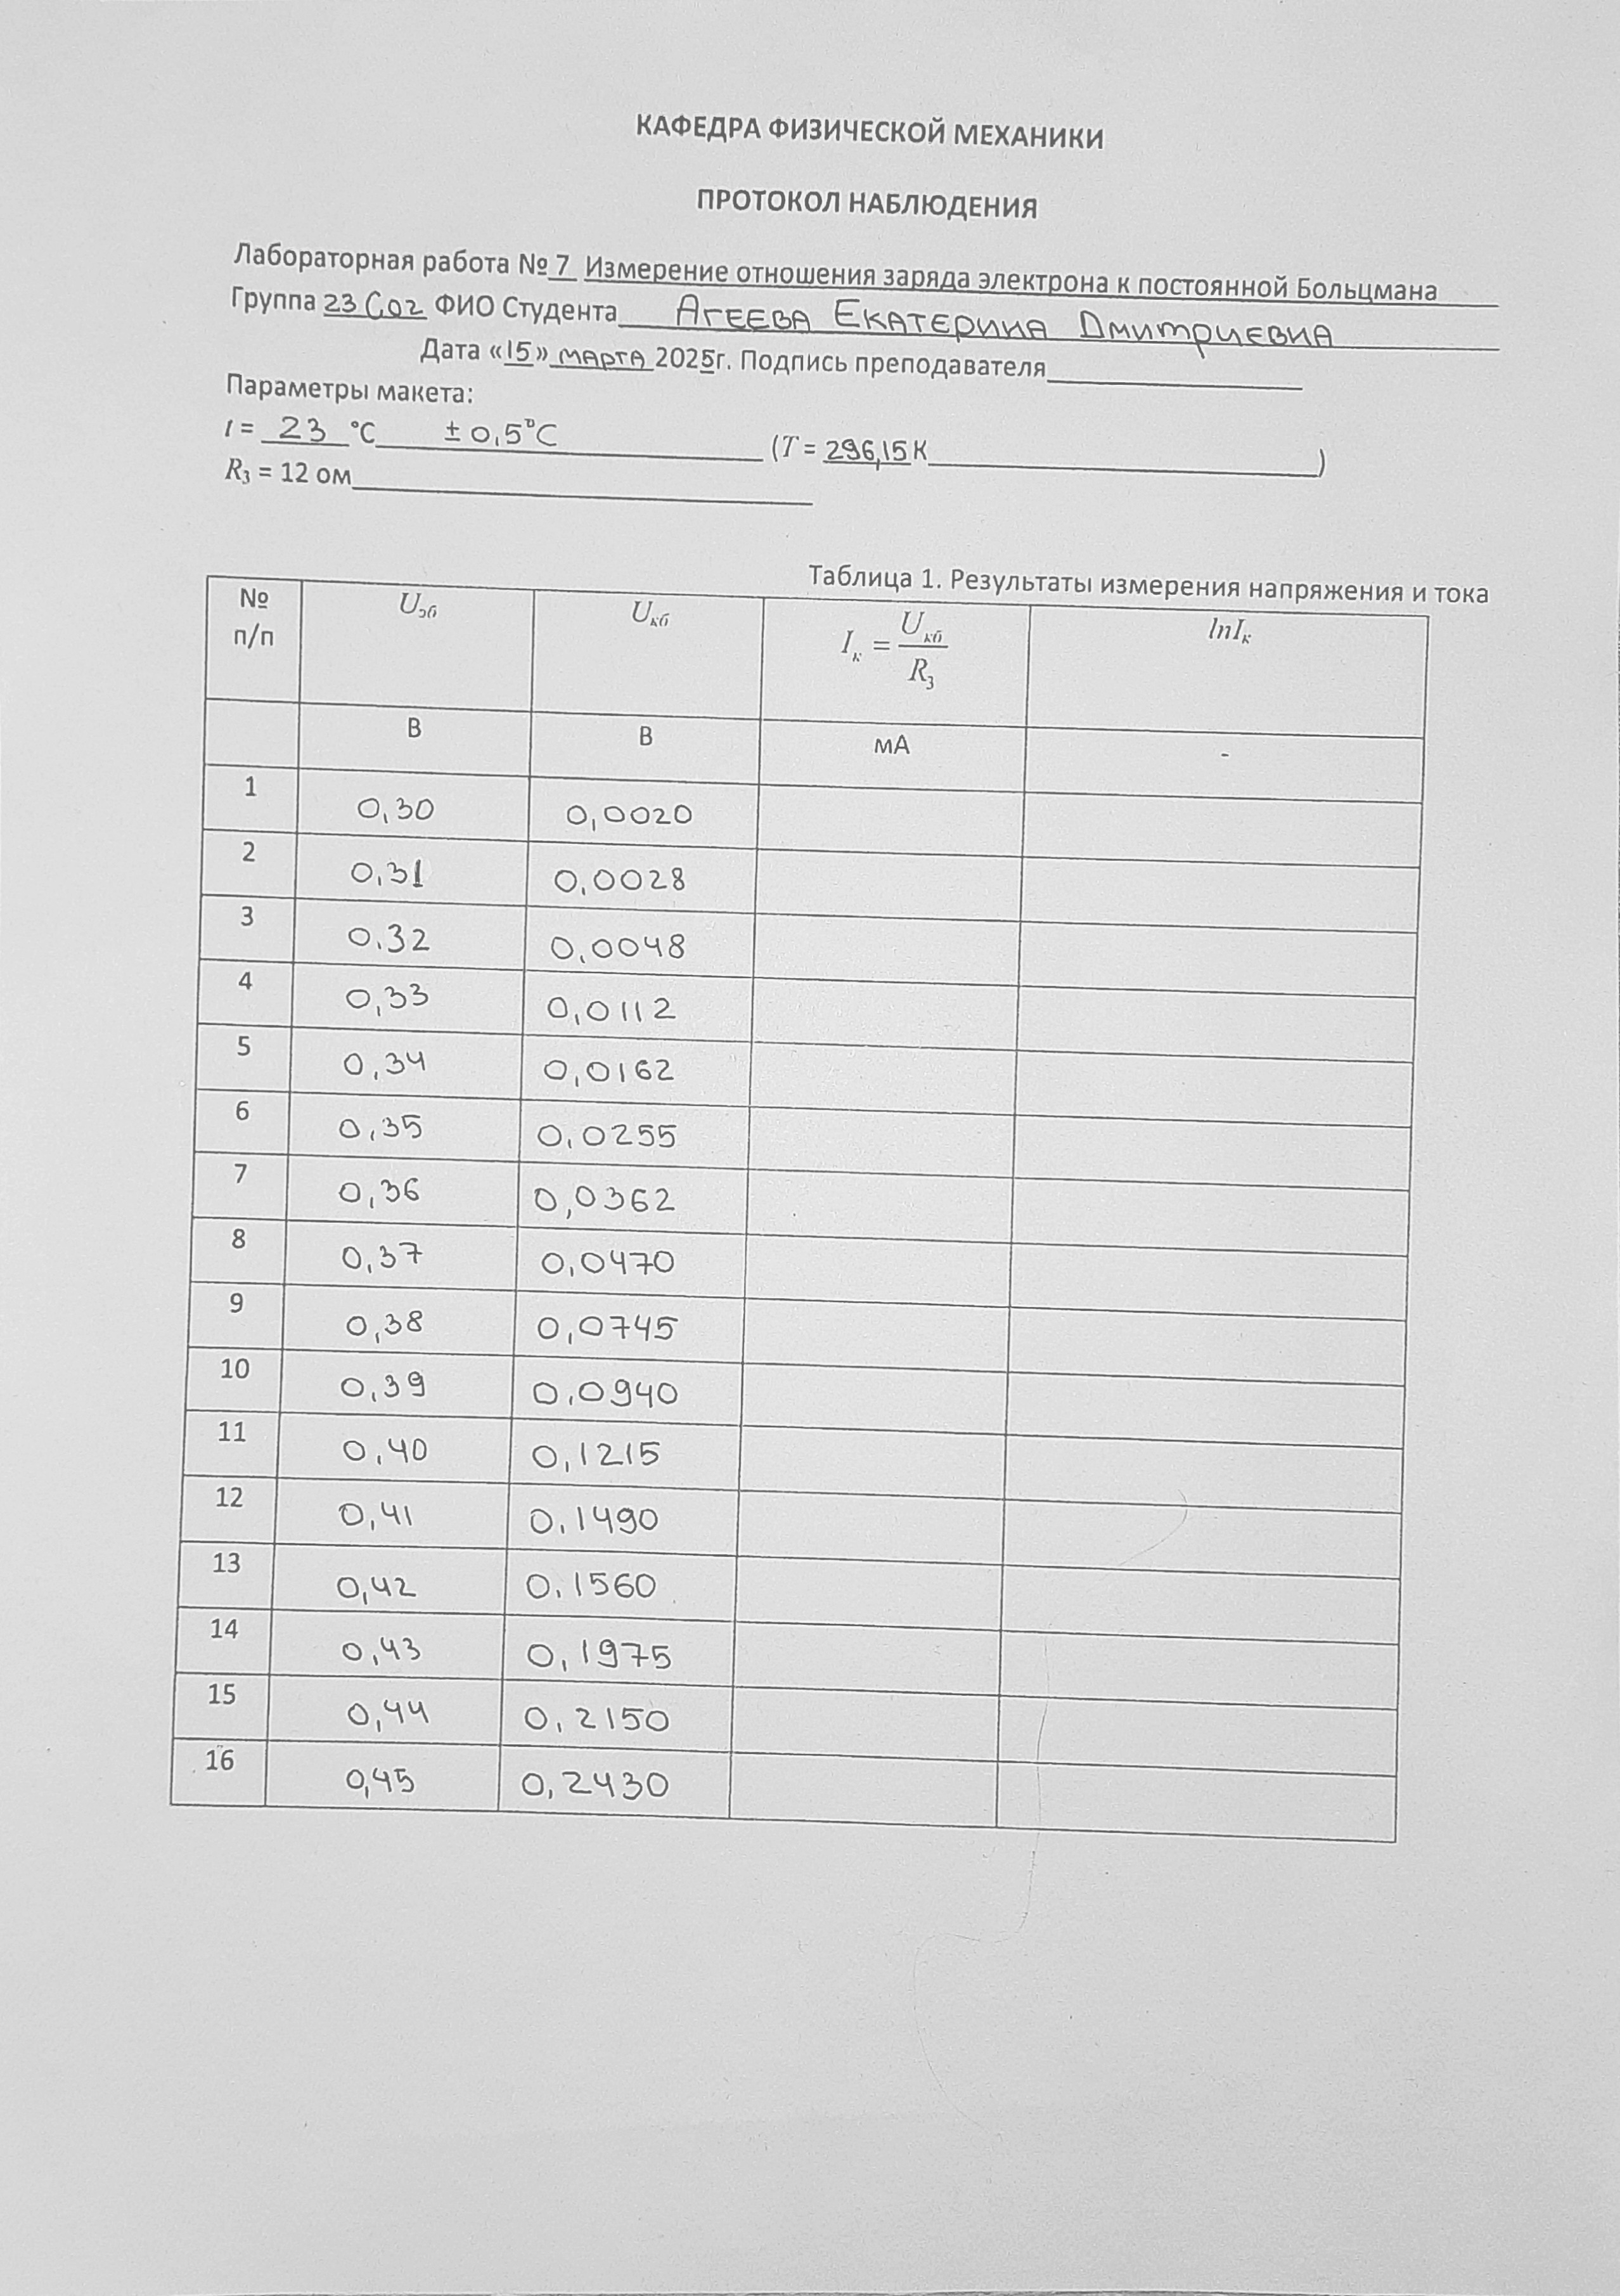 КАФЕДРА ФИЗИЧЕСКОЙ МЕХАНИКИ
ПРОТОКОЛ НАБЛЮДЕНИЯ
Лабораторная работа № 7 Измерение отношения заряда электрона к постоянной Больцмана
Группа 23 Соз ФИО Студента АГЕЕВА ЕКАТЕРИНА ДМИТРИЕВНА
Дата «15» МАРТА 2025г. Подпись преподавателя
Параметры макета:
t = 23 °C ± 0,5°C (T = 296,15 К )
R3 = 12 ом
Таблица 1. Результаты измерения напряжения и тока
№ п/п Uэб Uкб Iк = Uкб / R3 lnIк
В В мА -
1 0,30 0,0020
2 0,31 0,0028
3 0.32 0,0048
4 0,33 0,0112
5 0,34 0,0162
6 0,35 0,0255
7 0,36 0,0362
8 0,37 0,0470
9 0,38 0,0745
10 0,39 0,0940
11 0,40 0,1215
12 0,41 0,1490
13 0,42 0,1560
14 0,43 0,1975
15 0,44 0,2150
16 0,45 0,2430